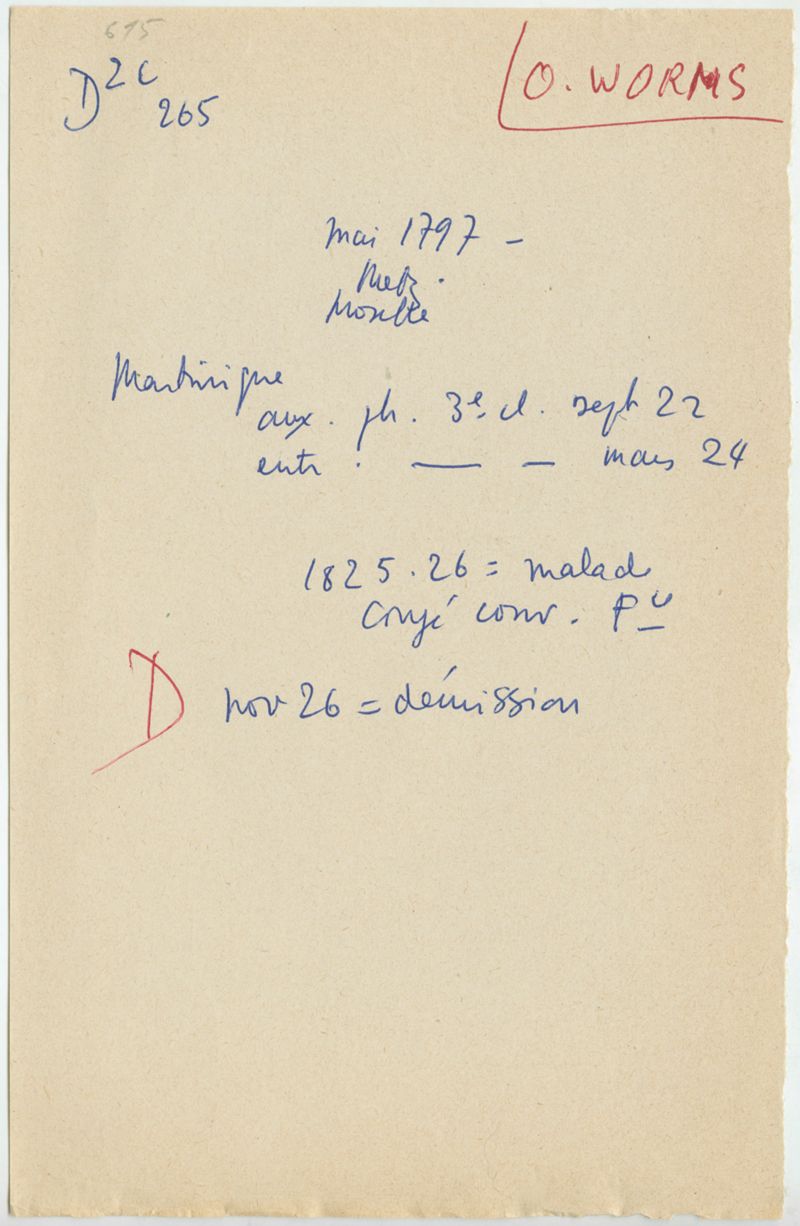 615
D 2c
265
O. WORMS
mai 1797 –
Metz.
Moselle
Martinique
aux. ph. 3e cl. sept 22
entr. — – mars 24
1825.26 = malade
Congé conv.
D nov 26 = démission